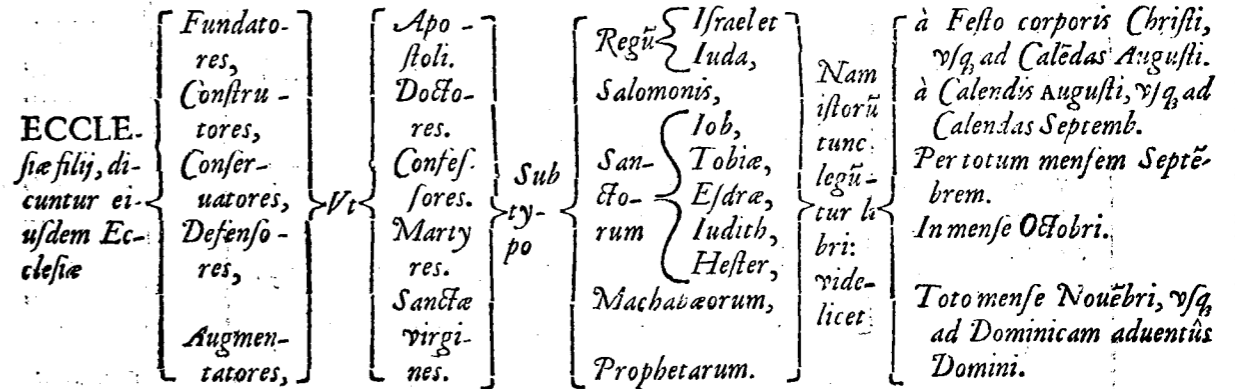 ECCLE-
ſiæ filij, di-
cuntur ei-
uſdem Ec-
cleſiæ
Fundato-
res,
Conſtru-
tores,
Conſer-
uatores,
Defenſo-
res,
Augmen-
tatores,
Vt
Apo-
ſtoli.
Docto-
res.
Confeſ-
ſores.
Marty
res.
Sanctæ
virgi-
nes.
Sub
ty-
po
Regũ
Iſrael et
Iuda,
Salomonis,
San-
cto-
rum
Iob,
Tobiæ,
Eſdræ,
Iudith,
Heſter,
Machabæorum,
Prophetarum.
Nam
iſtorũ
tunc
legũ-
tur li-
bri:
vide-
licet
à Feſto corporis Chriſti,
vſq; ad Calẽdas Auguſti.
à Calendis Auguſti, vſq; ad
Calendas Septemb.
Per totum menſem Septẽ-
brem.
In menſe Octobri.
Toto menſe Nouẽbri, vſq;
ad Dominicam aduentûs
Domini.